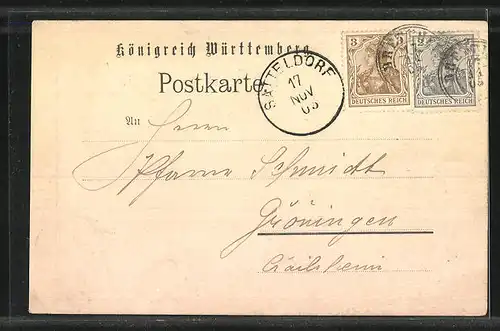 Königreich Württemberg.
Postkarte
SATTELDORF
17
NOV
3
DEUTSCHES REICH
2
DEUTSCHES REICH
An Herrn
Schmidt
Gröningen
Crailsheim